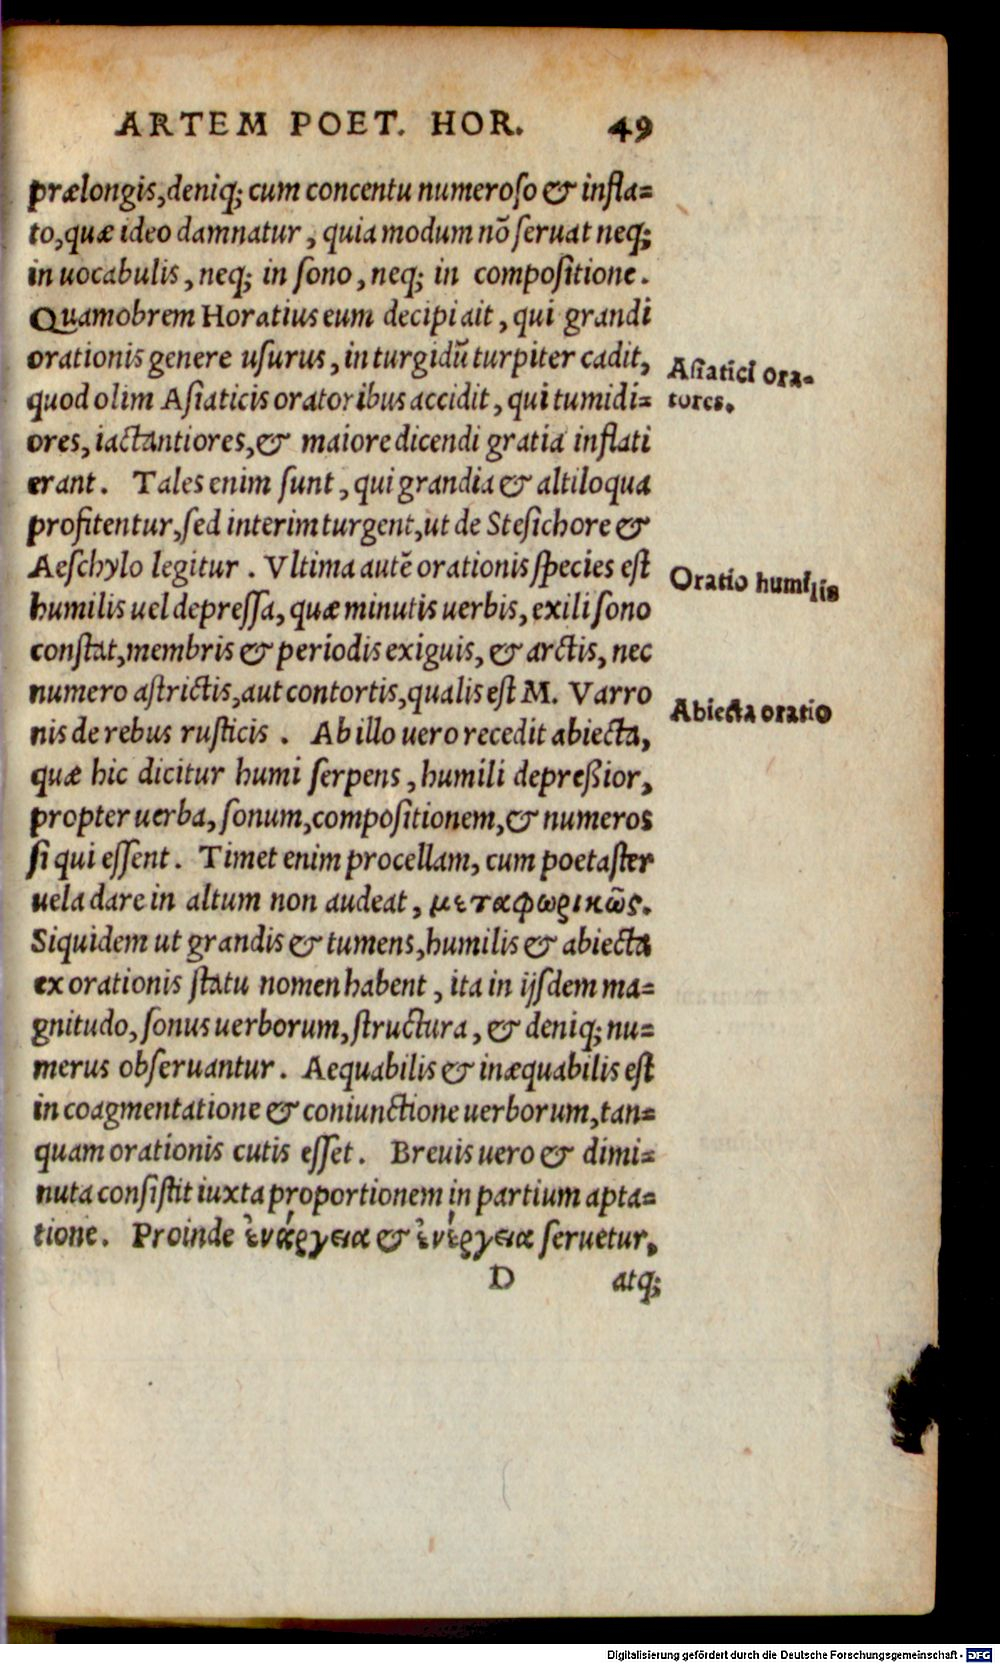 ARTEM POET. HOR. 49
prælongis, deniq; cum concentu numeroso & infla=
to, quæ ideo damnatur, quia modum nõ seruat neq;
in uocabulis, neq; in sono, neq; in compositione.
Quamobrem Horatius eum decipi ait, qui grandi
orationis genere usurus, in turgidũ turpiter cadit,
Asiatici ora=
quod olim Asiaticis oratoribus accidit, qui tumidi=
tores.
ores, iactantiores, & maiore dicendi gratia inflati
erant. Tales enim sunt, qui grandia & altiloqua
profitentur, sed interim turgent, ut de Stesichore &
Aeschylo legitur. Vltima autẽ orationis species est
Oratio humilis
humilis uel depressa, quæ minutis uerbis, exili sono
constat, membris & periodis exiguis, & arctis, nec
numero astrictis, aut contortis, qualis est M. Varro
Abiecta oratio
nis de rebus rusticis. Ab illo uero recedit abiecta,
quæ hic dicitur humi serpens, humili depreßior,
propter uerba, sonum, compositionem, & numeros
si qui essent. Timet enim procellam, cum poetaster
uela dare in altum non audeat, μεταφωρικῶς.
Siquidem ut grandis & tumens, humilis & abiecta
ex orationis statu nomen habent, ita in ijsdem ma=
gnitudo, sonus uerborum, structura, & deniq; nu=
merus obseruantur. Aequabilis & inæquabilis est
in coagmentatione & coniunctione uerborum, tan=
quam orationis cutis esset. Breuis uero & dimi=
nuta consistit iuxta proportionem in partium apta=
tione. Proinde ἐνάργεια & ἐνέργεια seruetur,
D atq;
Digitalisierung gefördert durch die Deutsche Forschungsgemeinschaft - DFG